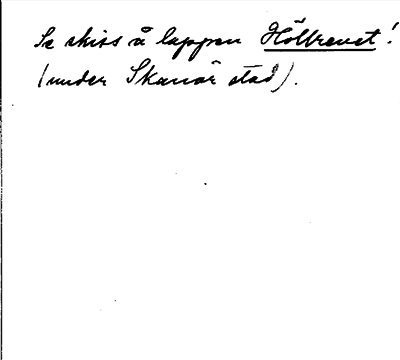 Se skiss å lappen Höllrevet!
(under Skanör stad).